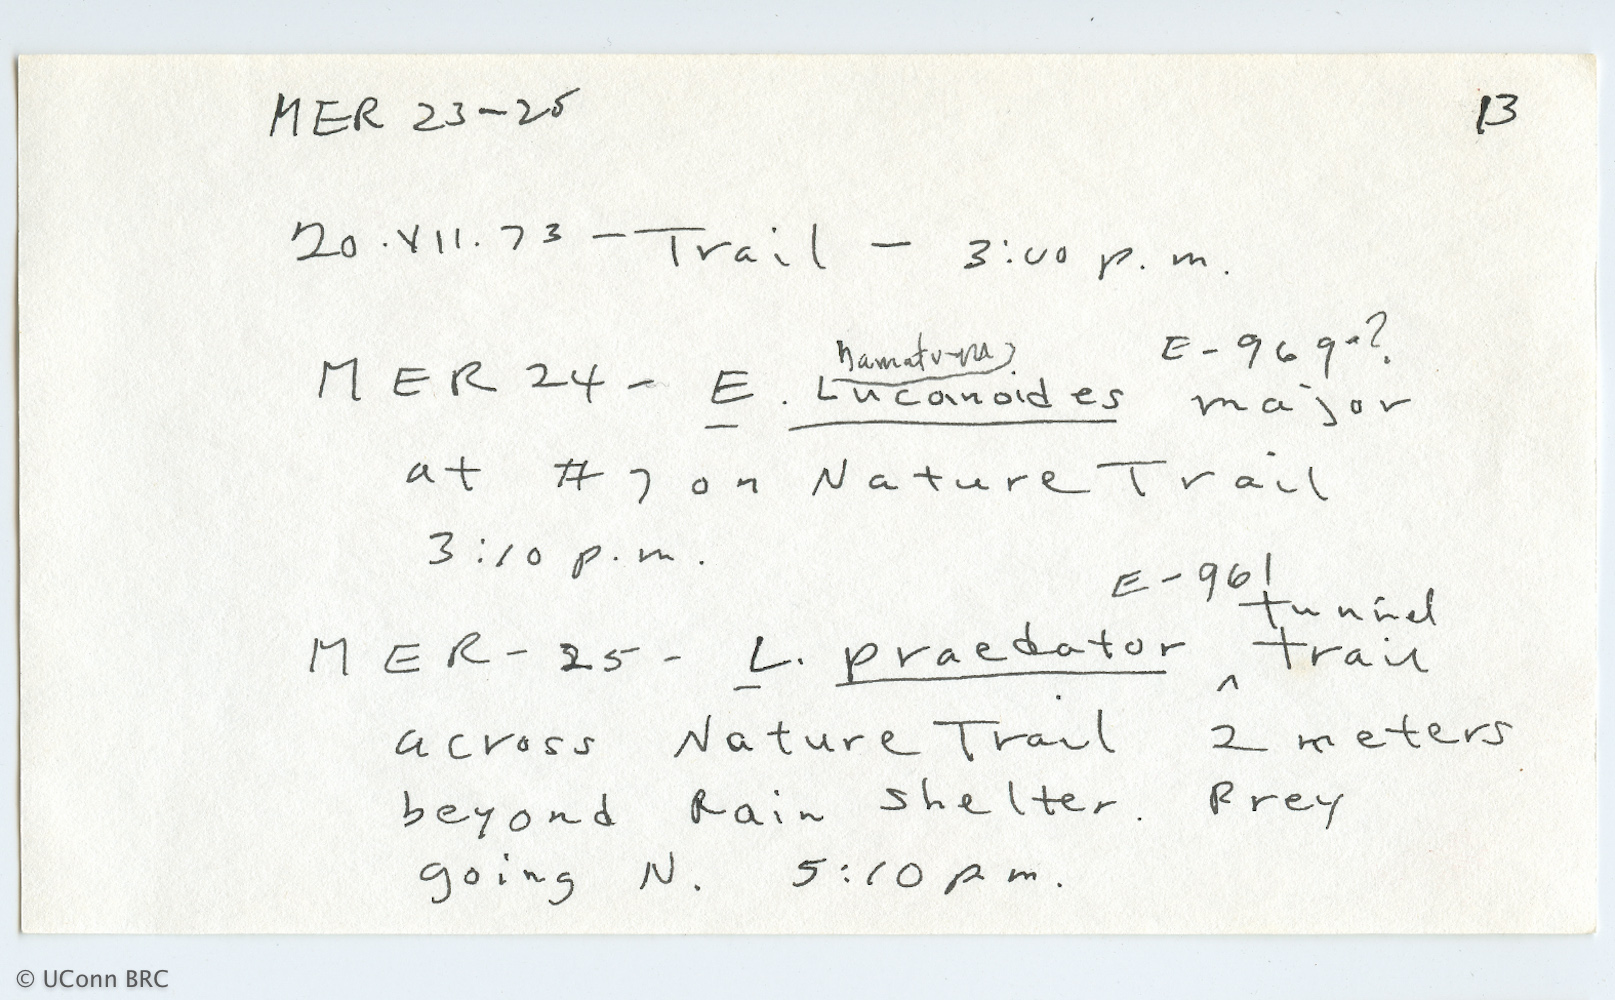 MER 23-25
13
20.VII.73 - Trail - 3:00 p.m.
hamatum
E-969a?
MER 24 - E. Lucanoides major
at #7 on Nature Trail
3:10 p.m.
E-961
tunnel
MER-25- L. praedator ^ trail
across Nature Trail 2 meters
beyond Rain Shelter. Prey
going N. 5:10 p.m.
© UConn BRC